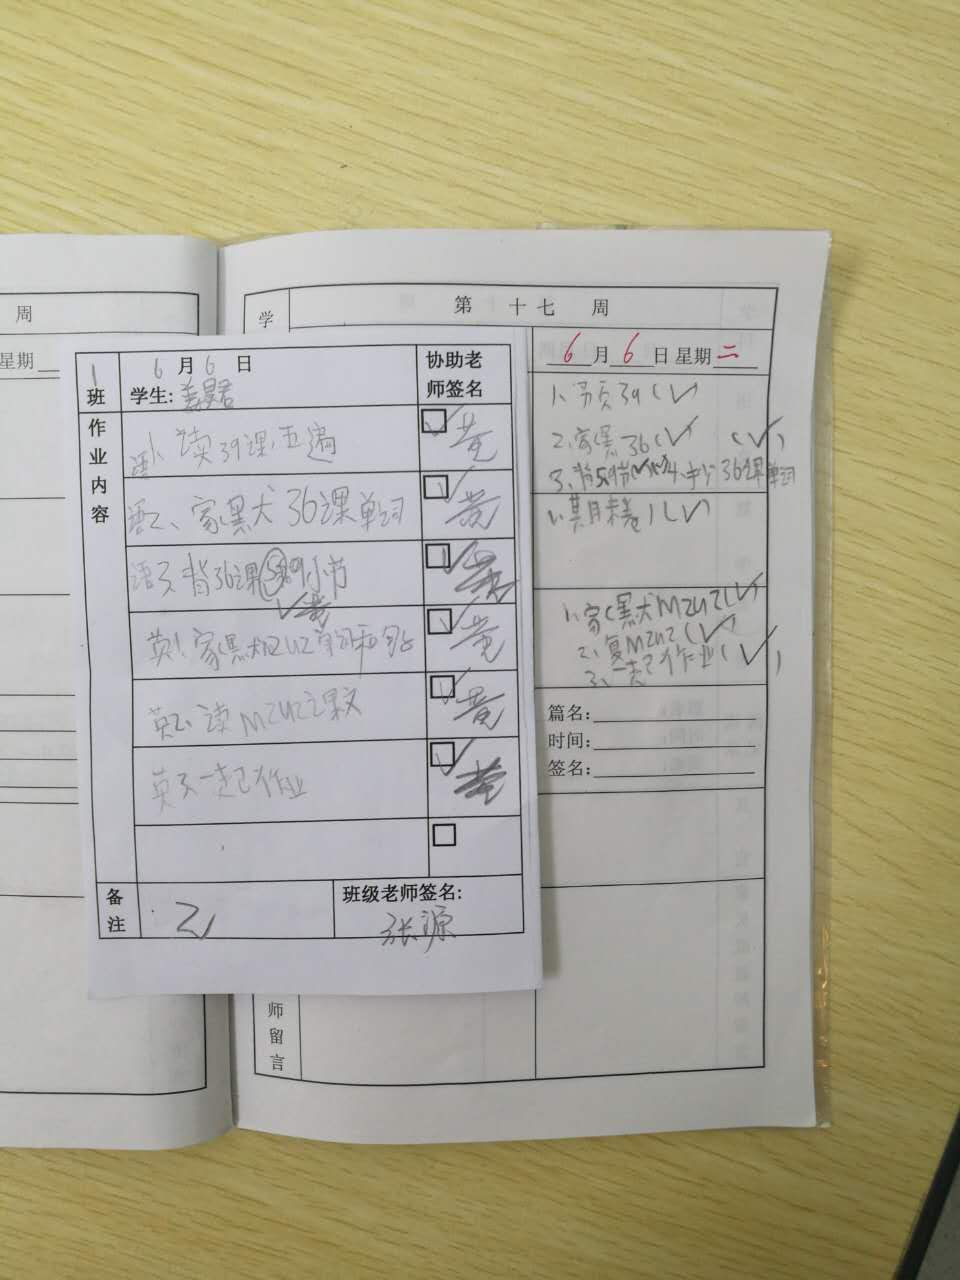 周
星期
学
第 十七 周
6月6日 星期二
1、读39(✓)
2、家黑36(✓)
(✓)
36课单词
1、期末卷1(✓)
1、家(黑犬M2U2(✓)
2、复M2U2(✓)
3、一起作业(✓)
篇名:
时间:
签名:
师留言
1班
6月6日
学生:
协助老师签名
作业内容
语1、读39课五遍
黄
语2、家黑犬36课单词
黄
语3背36课5 9小节
✓黄
英1、家黑犬M2U2单词和句
黄
英2、读M2U2课文
黄
英3一起作业
黄
备注
乙
班级老师签名:
张源